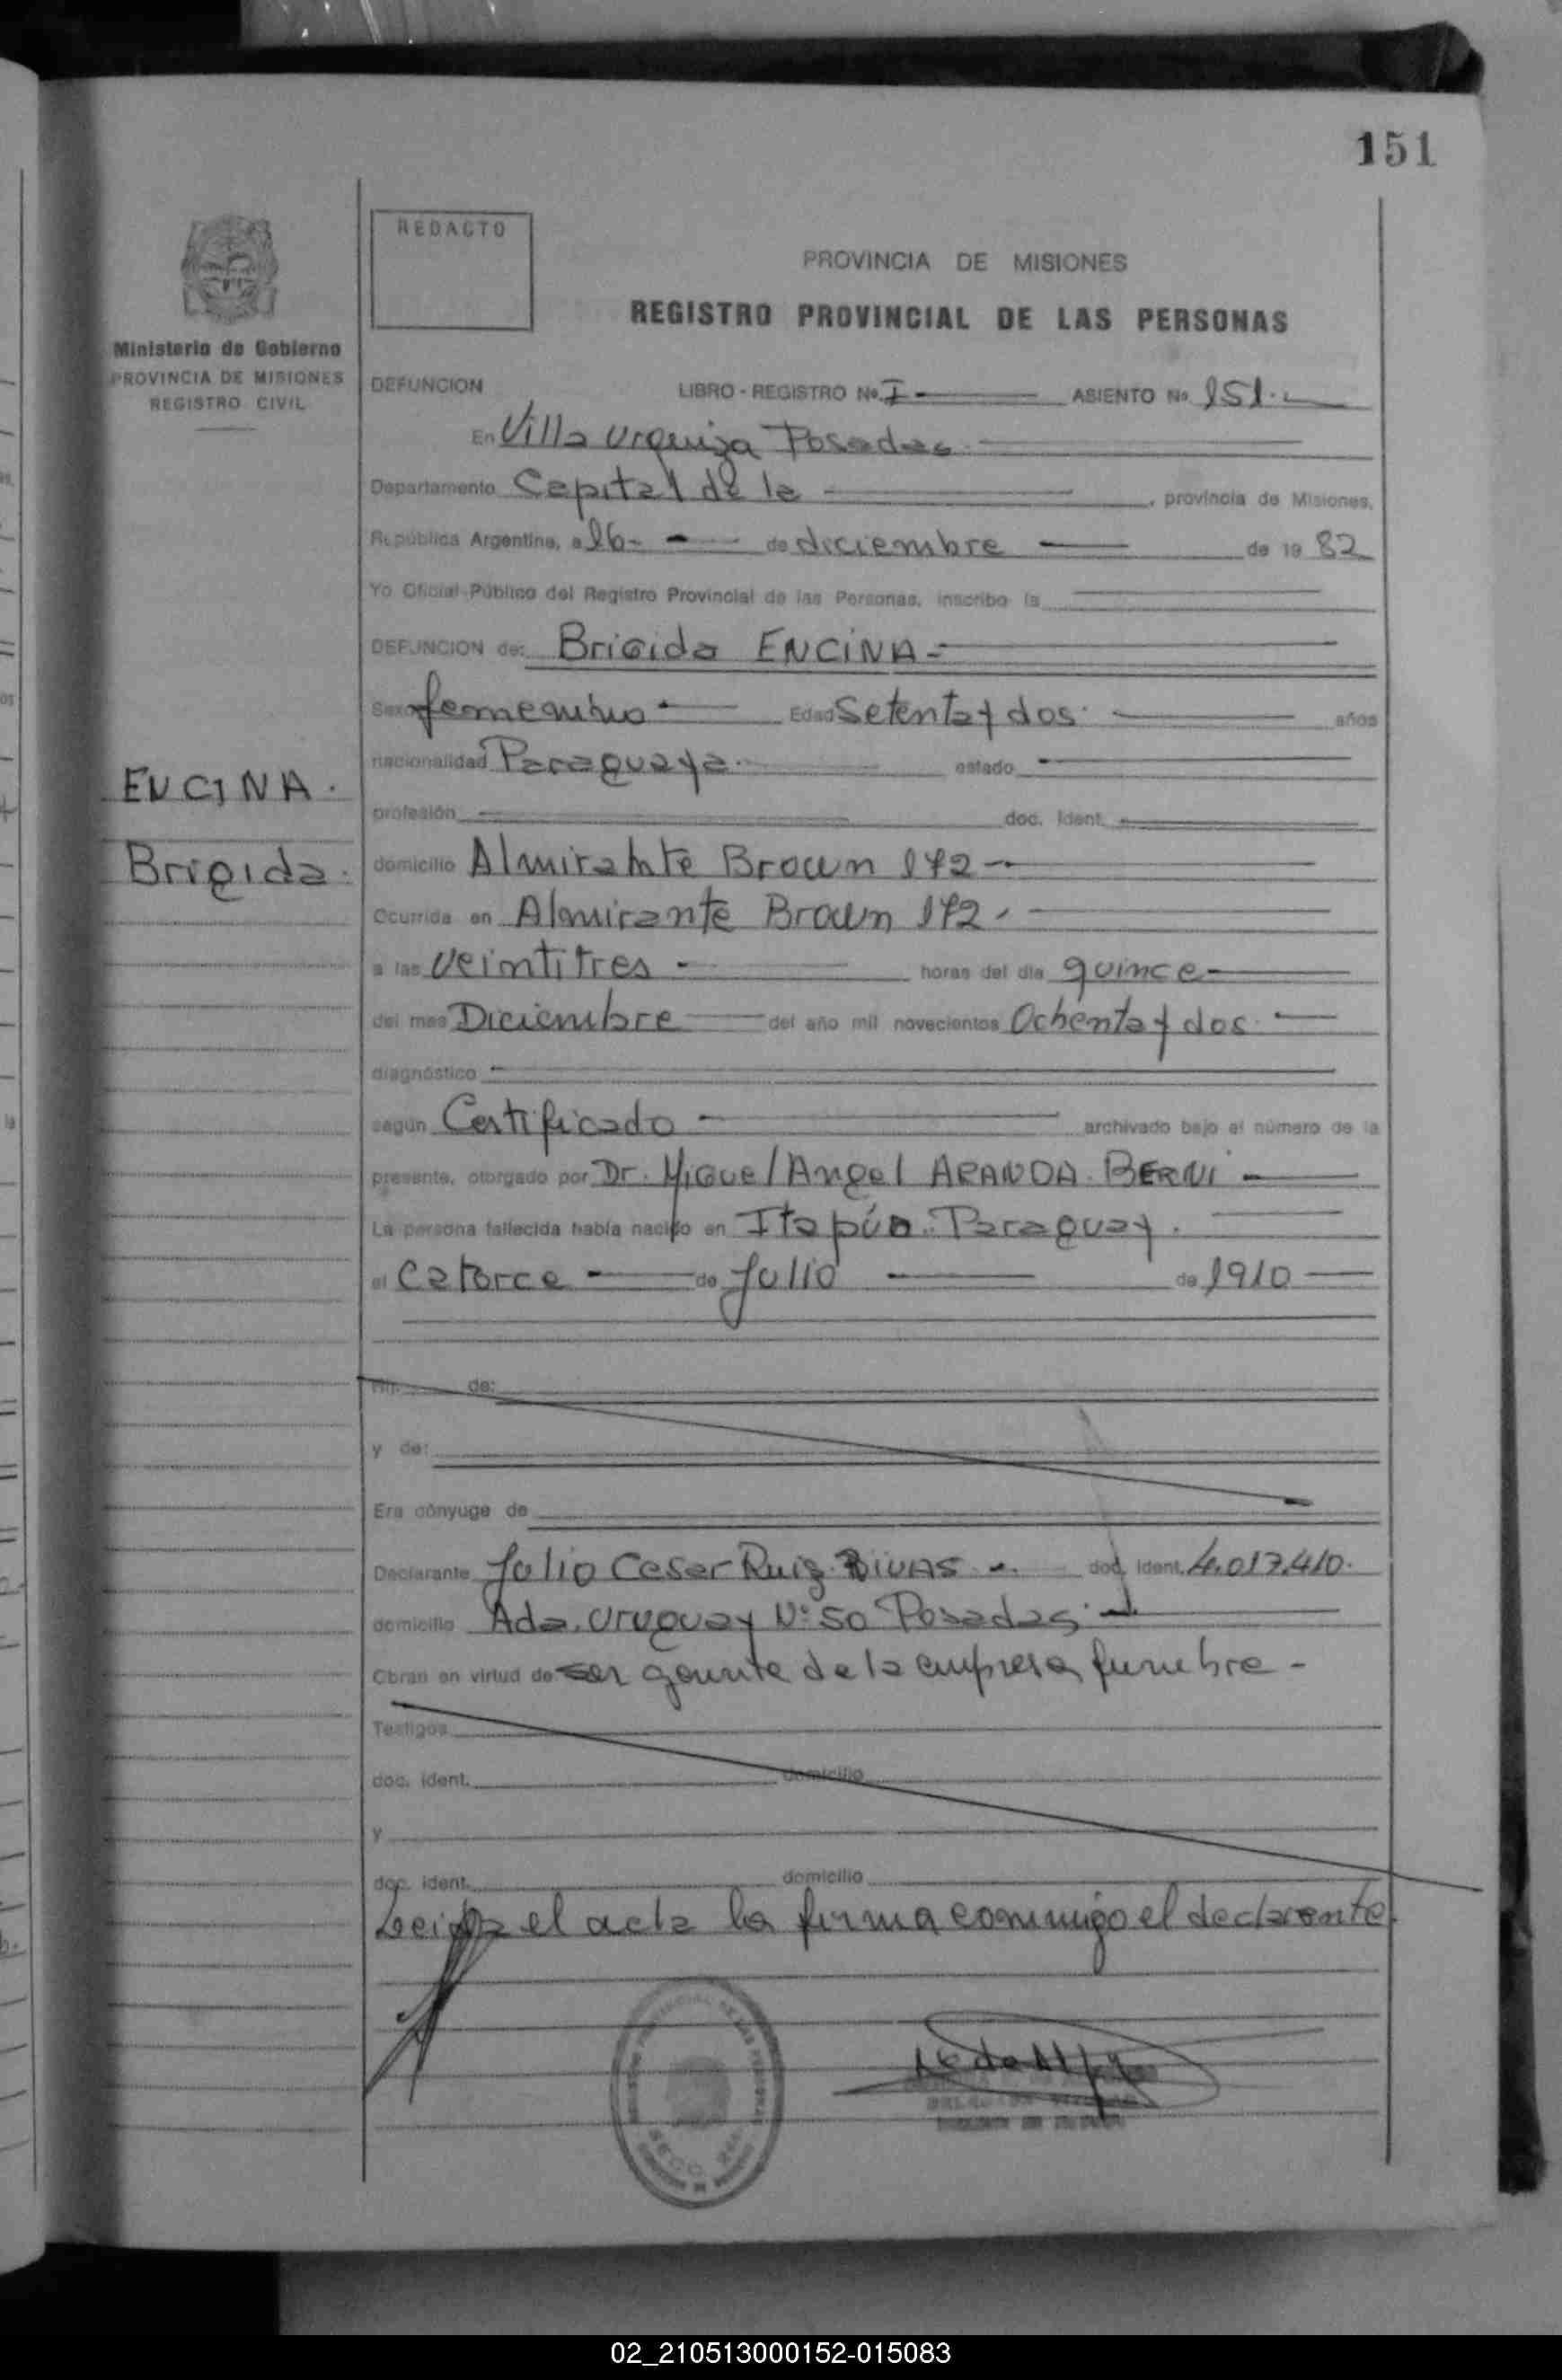 151
REDACTO
PROVINCIA DE MISIONES
REGISTRO PROVINCIAL DE LAS PERSONAS
Ministerio de Gobierno
PROVINCIA DE MISIONES
REGISTRO CIVIL
DEFUNCION LIBRO - REGISTRO No. I ASIENTO No. 151.
En Villa Urquiza Posadas
Departamento Capital de la , provincia de Misiones,
República Argentina, a 16 de diciembre de 19 82
Yo Oficial Público del Registro Provincial de las Personas, inscribo la
DEFUNCION de: Brigida ENCINA
Sexo femenino Edad Setenta y dos años
nacionalidad Paraguaya estado
ENCINA.
profesión doc. Ident.
Brigida.
domicilio Almirante Brown 172
Ocurrida en Almirante Brown 172
a las veintitres horas del día quince
del mes Diciembre del año mil novecientos Ochenta y dos
diagnóstico
según Certificado archivado bajo el número de la
presente, otorgado por Dr. Miguel Angel ARANDA BERNI
La persona fallecida había nacido en Itapúa. Paraguay.
el Catorce de Julio de 1910
Hij. de:
y de:
Era cónyuge de
Declarante Julio Cesar Ruiz RIVAS doc. Ident. 4.017.410.
domicilio Avda. Uruguay Nº 50 Posadas
Obran en virtud de ser gerente de la empresa funebre
Testigos
doc. ident. domicilio
y
doc. ident. domicilio
Leida el acta la firma conmigo el declarante.
02_210513000152-015083